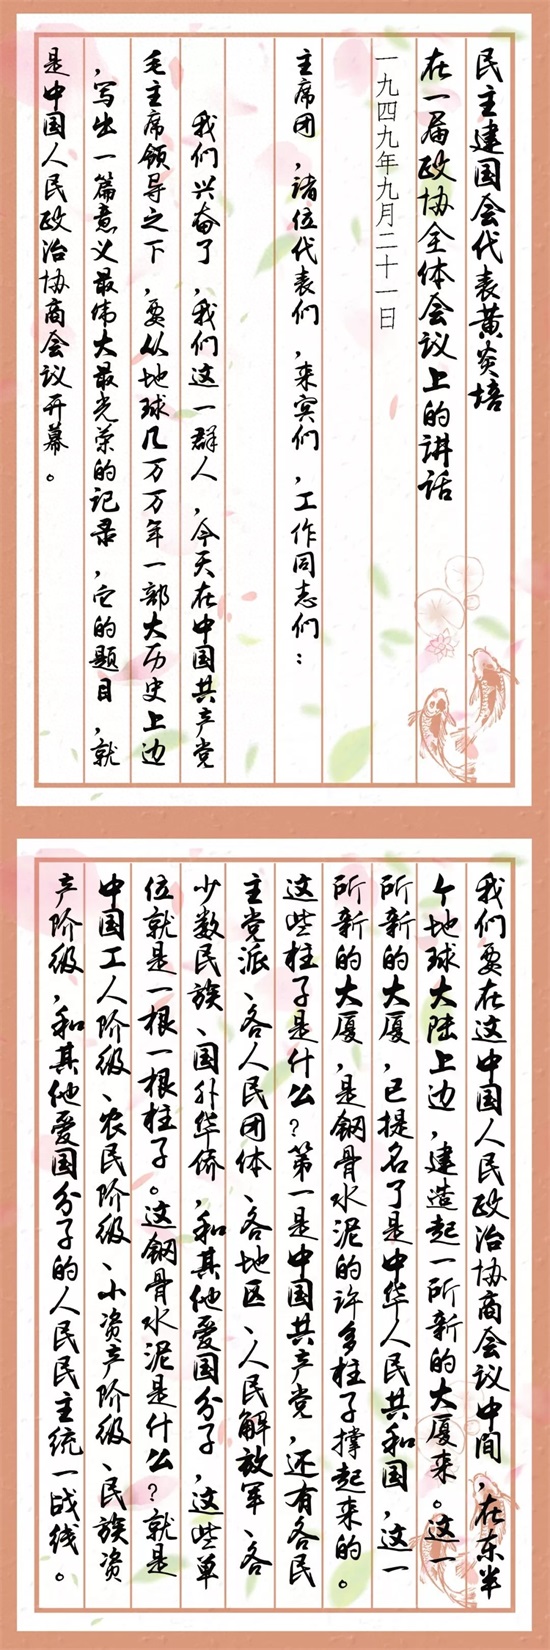 民主建国会代表黄炎培
在一届政协全体会议上的讲话
一九四九年九月二十一日
主席团，诸位代表们，来宾们，工作同志们：
我们兴奋了，我们这一群人，今天在中国共产党
毛主席领导之下，要从地球几万万年一部大历史上边
，写出一篇意义最伟大最光荣的记录，它的题目，就
是中国人民政治协商会议开幕。
我们要在这中国人民政治协商会议中间，在东半
个地球大陆上边，建造起一所新的大厦来。这一
所新的大厦，已提名了是中华人民共和国，这一
所新的大厦，是钢骨水泥的许多柱子撑起来的。
这些柱子是什么？第一是中国共产党，还有各民
主党派、各人民团体、各地区、人民解放军、各
少数民族、国外华侨，和其他爱国分子，这些单
位就是一根一根柱子。这钢骨水泥是什么？就是
中国工人阶级、农民阶级、小资产阶级、民族资
产阶级，和其他爱国分子的人民民主统一战线。